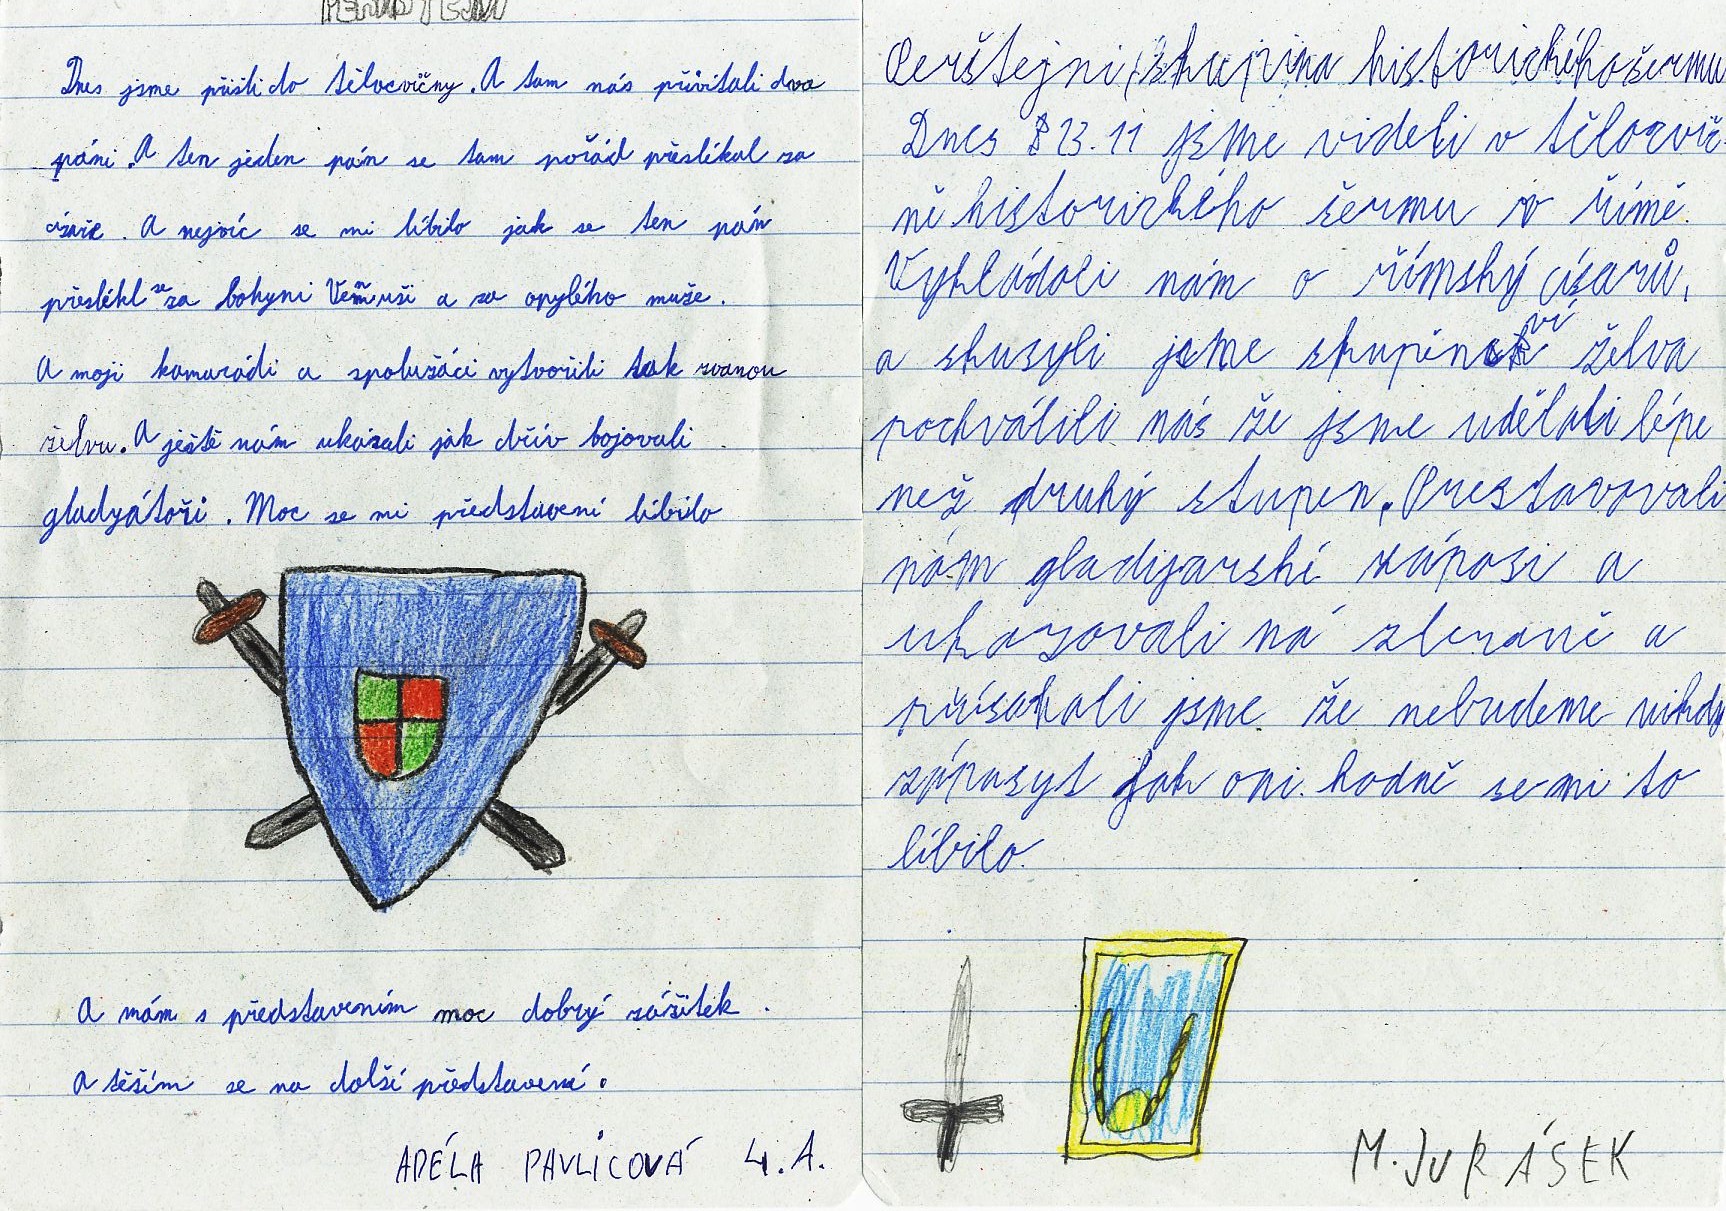 PERNŠTEJN
Dnes jsme přišli do tělocvičny. A tam nás přivítali dva
páni. A ten jeden pán se tam pořád přeslékal za
císaře. A nejvíc se mi líbilo jak se ten pán
přeslékl se za bohyni Venuši a za opylého muže.
A moji kamarádi a spolužáci vytvořili tak zvanou
želvu. A ještě nám ukázali jak dřív bojovali
gladyátoři. Moc se mi představení líbilo
A mám s představením moc dobrý zážitek.
A těším se na další představení.
ADÉLA PAVLICOVÁ 4.A.
Perštejni skupina historického šermu
Dnes 23.11 jsme videli v tělocvič-
ně historického šermu v římě.
Vykládali nám o římský císařů,
a skusyli jsme skupinoví želva
pochválili nás že jsme udělali lépe
než druhý stupen. Prestavovali
nám gladijarski zápasi a
ukazovali ná zbraně a
přísahali jsme že nebudeme nikdy
zápasyt jak oni. hodně se mi to
líbilo.
M. JURÁSEK